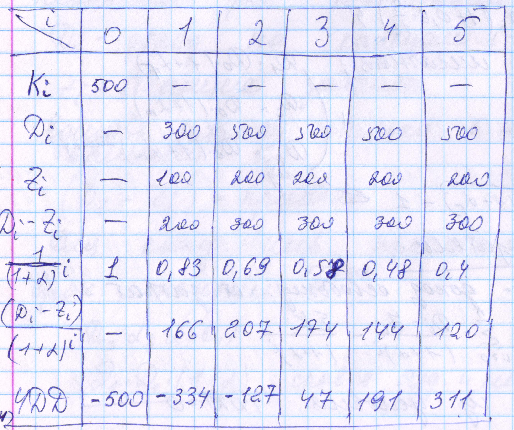 i 0 1 2 3 4 5
Ki 500 — — — — —
Di — 300 500 500 500 500
Zi — 100 200 200 200 200
Di - Zi — 200 300 300 300 300
1/(1+α)^i 1 0,83 0,69 0,58 0,48 0,4
(Di - Zi)/(1+α)^i — 166 207 174 144 120
ЧДД -500 -334 -127 47 191 311